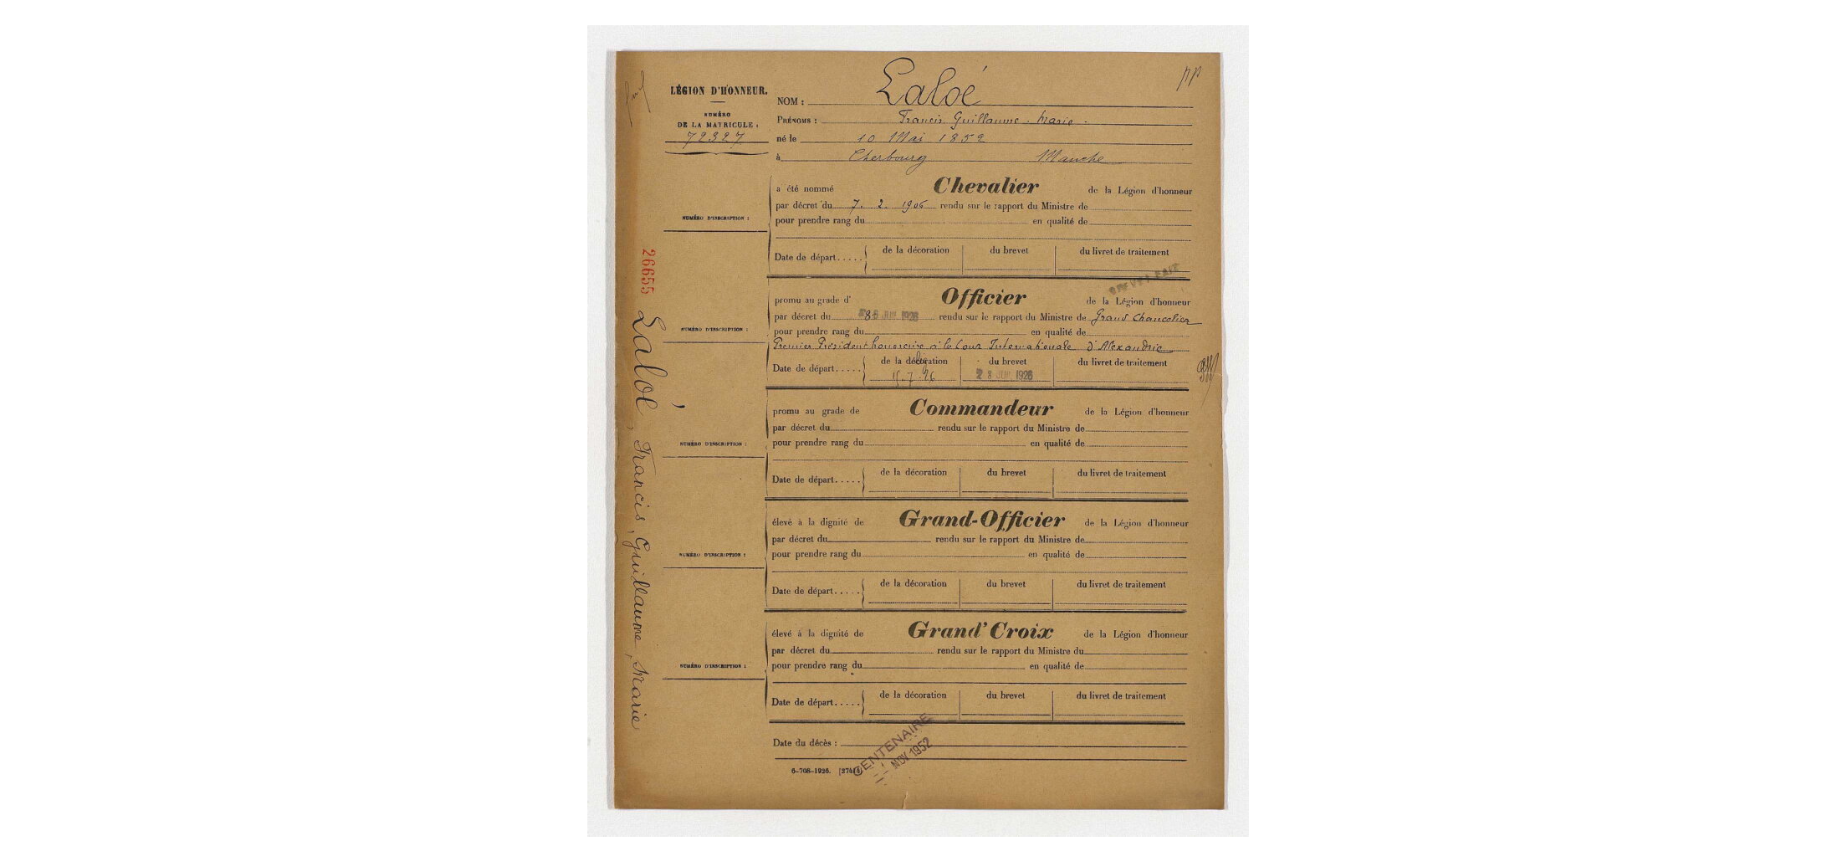 pp
LÉGION D'HONNEUR.
NUMÉRO
DE LA MATRICULE :
72327
NOM : Laloé
PRÉNOMS : Francis Guillaume Marie
né le 10 Mai 1852
à Cherbourg Manche
a été nommé Chevalier de la Légion d'honneur
par décret du 7. 2. 1906 rendu sur le rapport du Ministre de
NUMÉRO D'INSCRIPTION :
pour prendre rang du en qualité de
Date de départ..... de la décoration du brevet du livret de traitement
BREVET FAIT
26655
promu au grade d' Officier de la Légion d'honneur
par décret du rendu sur le rapport du Ministre de Grand Chancelier
NUMÉRO D'INSCRIPTION :
pour prendre rang du en qualité de
Premier Président honoraire à la Cour Internationale d'Alexandrie
Date de départ..... de la décoration du brevet du livret de traitement
1926
promu au grade de Commandeur de la Légion d'honneur
par décret du rendu sur le rapport du Ministre de
NUMÉRO D'INSCRIPTION :
pour prendre rang du en qualité de
Date de départ..... de la décoration du brevet du livret de traitement
élevé à la dignité de Grand-Officier de la Légion d'honneur
par décret du rendu sur le rapport du Ministre de
NUMÉRO D'INSCRIPTION :
pour prendre rang du en qualité de
Date de départ..... de la décoration du brevet du livret de traitement
élevé à la dignité de Grand'Croix de la Légion d'honneur
par décret du rendu sur le rapport du Ministre du
NUMÉRO D'INSCRIPTION :
pour prendre rang du en qualité de
Date de départ..... de la décoration du brevet du livret de traitement
Date du décès :
CENTENAIRE
NOV 1952
6-708-1926.
Laloé, Francis, Guillaume, Marie